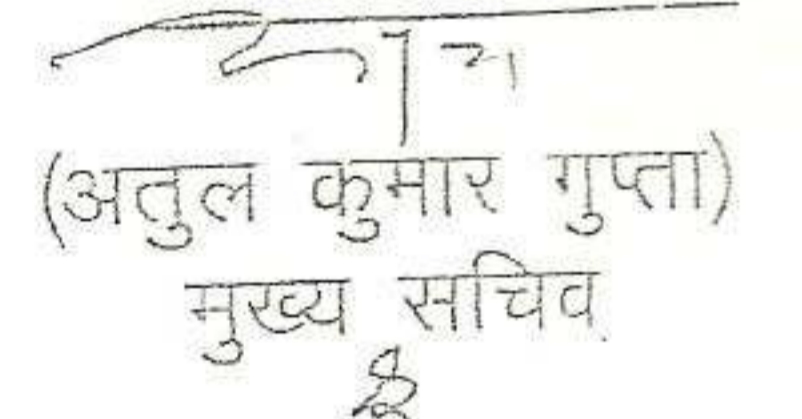 (अतुल कुमार गुप्ता)
मुख्य सचिव